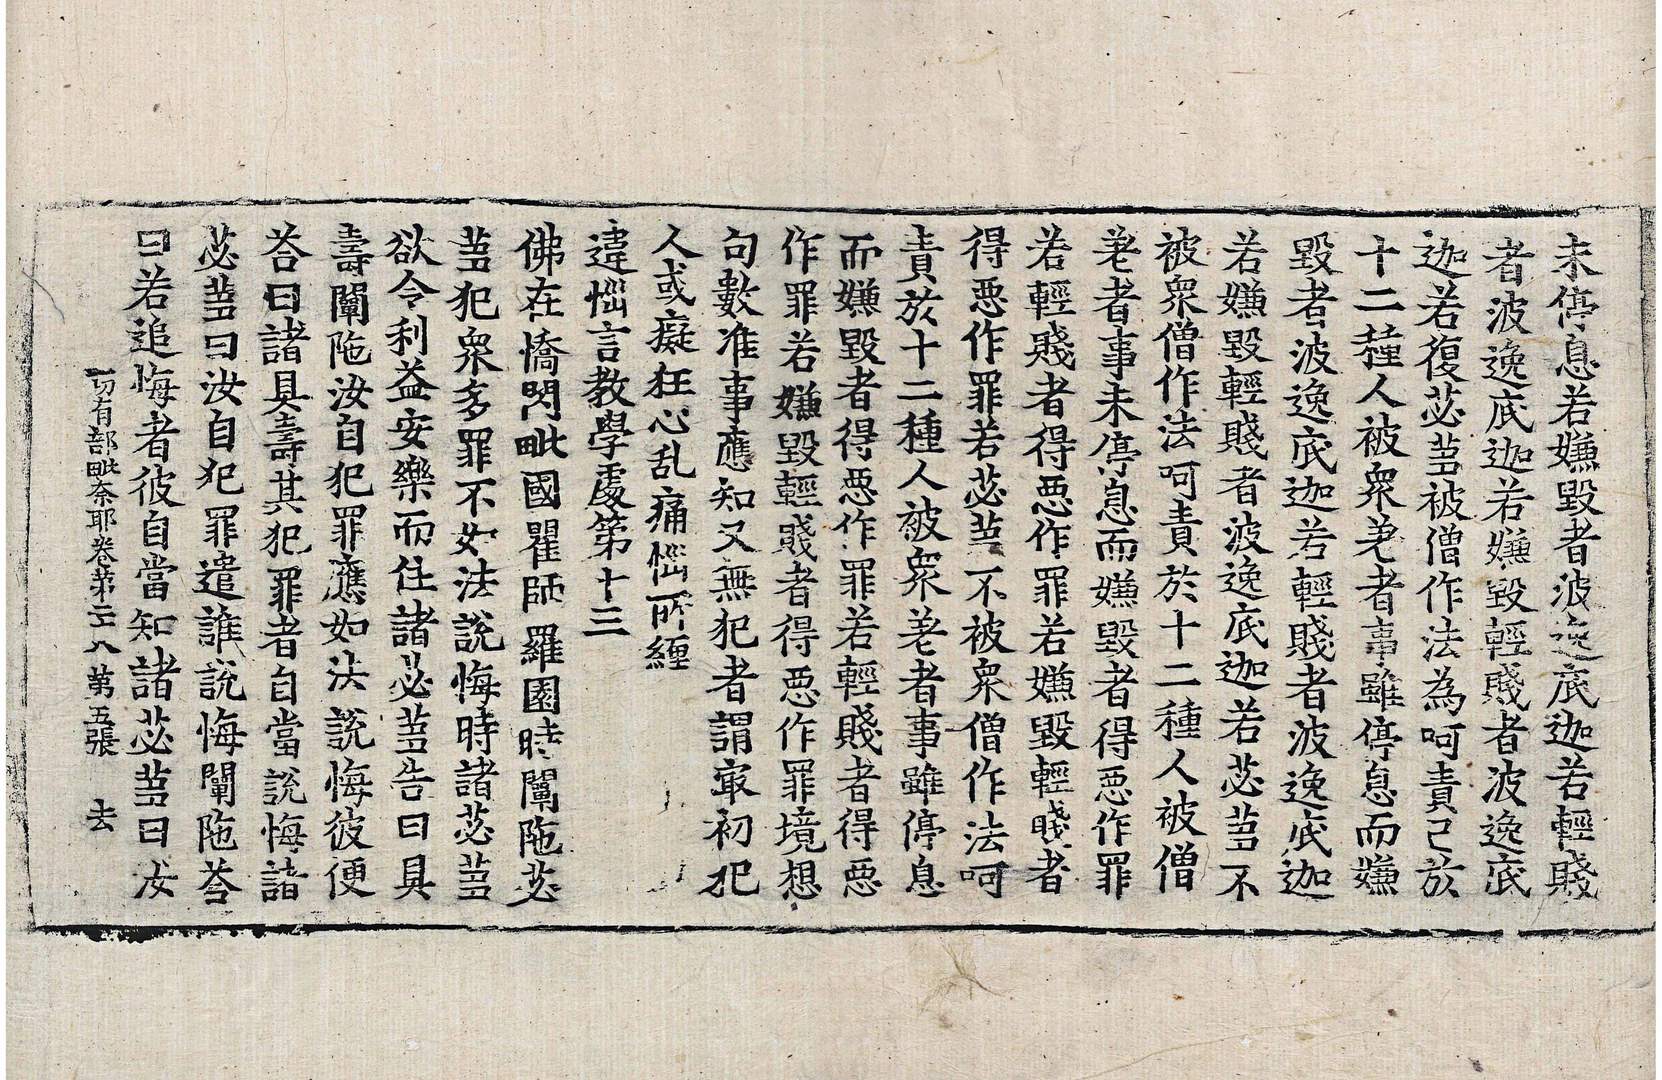 未停息若嫌毀者波逸底迦若輕賤
者波逸底迦若嫌毀輕賤者波逸底
迦若復苾芻被僧作法為呵責已於
十二種人被眾差者事雖停息而嫌
毀者波逸底迦若輕賤者波逸底迦
若嫌毀輕賤者波逸底迦若苾芻不
被眾僧作法呵責於十二種人被僧
差者事未停息而嫌毀者得惡作罪
若輕賤者得惡作罪若嫌毀輕賤者
得惡作罪若苾芻不被眾僧作法呵
責於十二種人被眾差者事雖停息
而嫌毀者得惡作罪若輕賤者得惡
作罪若嫌毀輕賤者得惡作罪境想
句數准事應知又無犯者謂㝡初犯
人或癡狂心乱痛惱所纏
違惱言教學處第十三
佛在憍閃毗國瞿師羅園時闡陁苾
芻犯眾多罪不如法說悔時諸苾芻
欲令利益安樂而住諸苾芻告曰具
壽闡陁汝自犯罪應如法說悔彼便
荅曰諸具壽其犯罪者自當說悔諸
苾芻曰汝自犯罪遣誰說悔闡陁荅
曰若追悔者彼自當知諸苾芻曰汝
一切有部毗奈耶卷第二十八 第五張 去